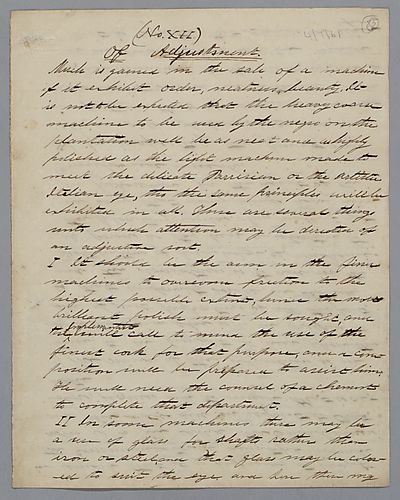 (No. XII)
Of Adjustment.
Much is gained in the sale of a machine
if it exhibit order, neatness, beauty. It
is not to be expected that the heavy coarse
machine to be used by the negro on the
plantation will be as neat and highly
polished as the light machine made to
meet the delicate Parrisian or the artistic
Italian eye, tho the same principles will be
exhibited in all. There are several things
unto which attention may be directed of
an adjusting sort.
I It should be the aim in the finer
machines to overcome friction to the
highest possible extent, hence the most
brilliant polish must be sought and
the will call to mind the use of the
finest cork for that purpose, and a com
position will be prepared to assist him,
He will need the counsel of a chemist
to complete that department.
II In some machines there may be
a use of glass for shafts rather than
iron or steel, and that glass may be color-
ed to suit the eye and here there may